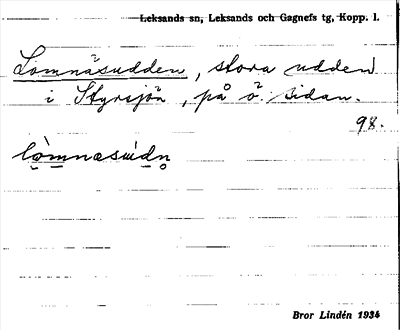 Leksands sn, Leksands och Gagnefs tg, Kopp. l.
Lomnäsudden, stora udden
i Styrsjön, på ö. sidan.
98.
Bror Lindén 1934